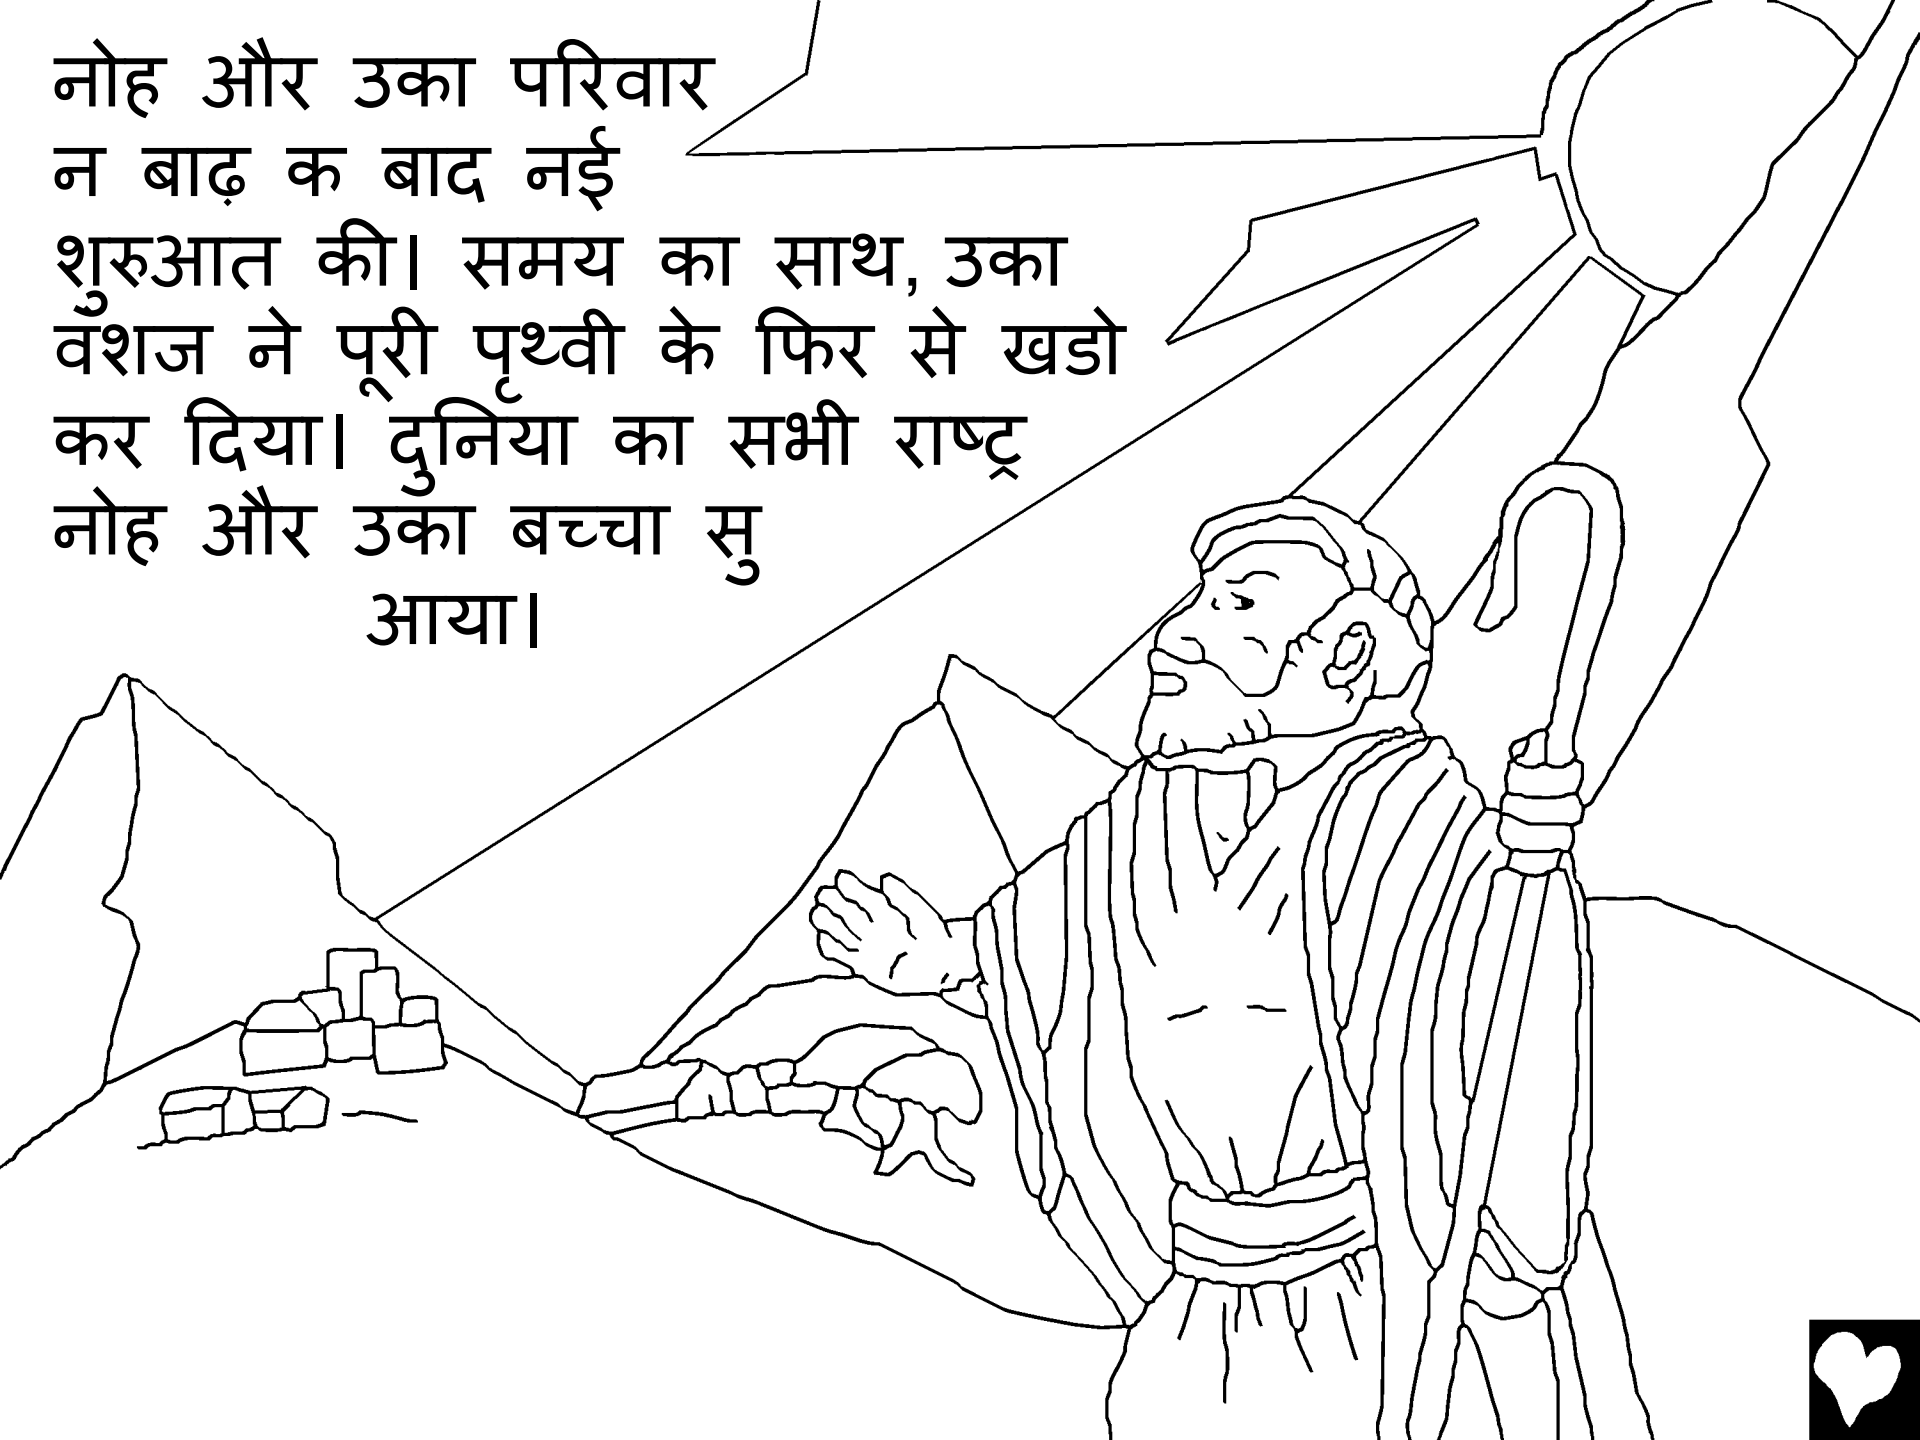 नोह और उका परिवार
न बाढ़ क बाद नई
शुरुआत की। समय का साथ, उका
वंशज ने पूरी पृथ्वी के फिर से खडो
कर दिया। दुनिया का सभी राष्ट्र
नोह और उका बच्चा सु
आया।